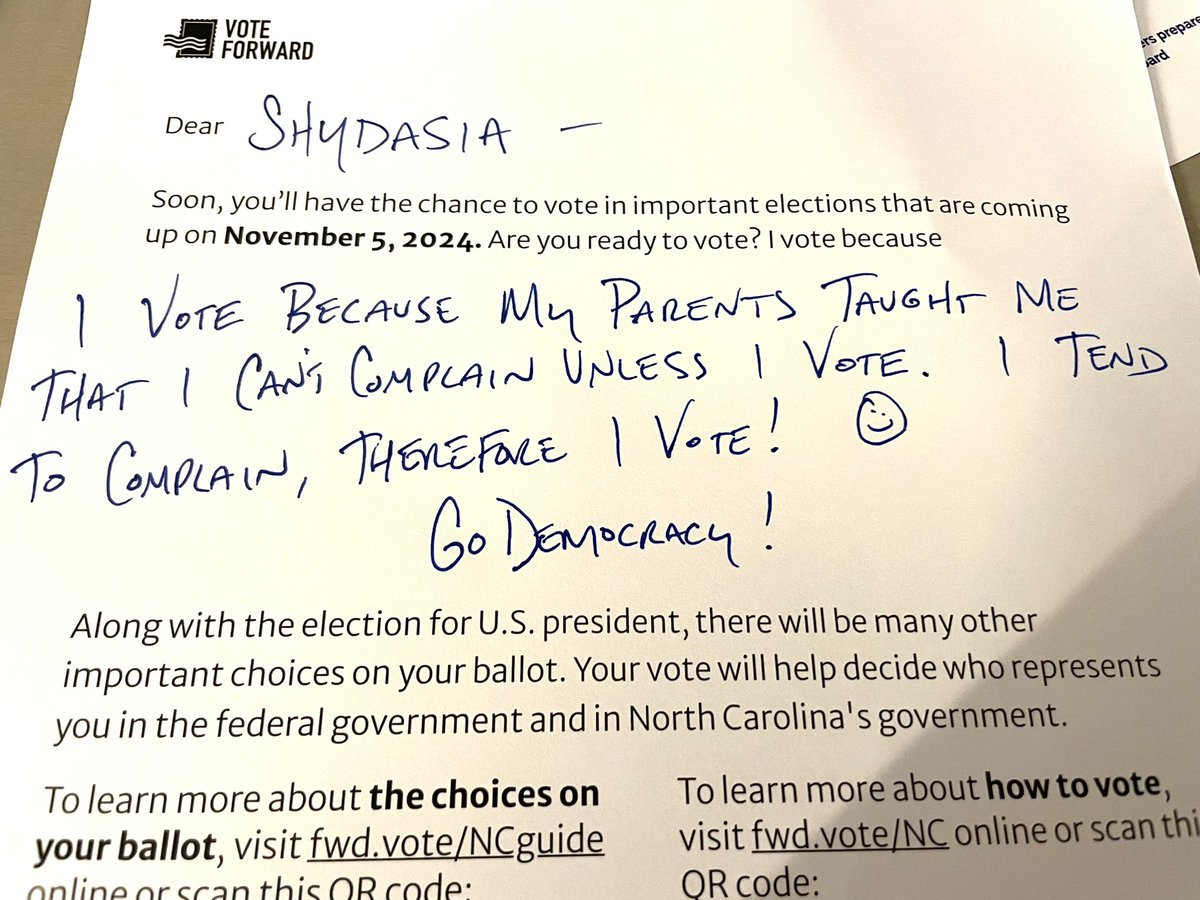 VOTE
FORWARD
ers prepare
ard
Dear SHYDASIA —
Soon, you'll have the chance to vote in important elections that are coming
up on November 5, 2024. Are you ready to vote? I vote because
I VOTE BECAUSE MY PARENTS TAUGHT ME
THAT I CAN'T COMPLAIN UNLESS I VOTE. I TEND
TO COMPLAIN, THEREFORE I VOTE!
GO DEMOCRACY!
Along with the election for U.S. president, there will be many other
important choices on your ballot. Your vote will help decide who represents
you in the federal government and in North Carolina's government.
To learn more about the choices on
your ballot, visit fwd.vote/NCguide
online or scan this QR code:
To learn more about how to vote,
visit fwd.vote/NC online or scan thi
QR code: